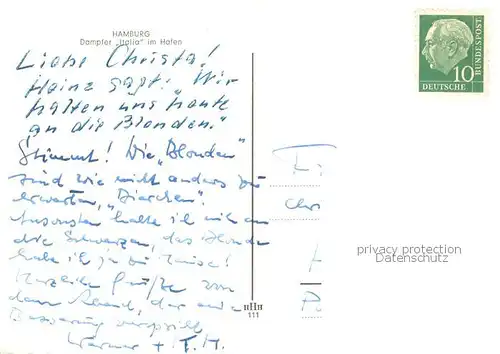 HAMBURG
Dampfer „Italia" im Hafen
Liebe Christa!
Heinz sagt: „Wir
halten uns heute
an die Blonden."
Stimmt! Die „Blonden"
sind wie nicht anders zu
erwarten, „Bierchen".
Ansonsten halte ich mich an
die Schwarzen, das Blonde
habe ich ja zu Hause!
Herzliche Grüße von
dem Abend, der
Besserung verspricht
Werner + T.H.
111
10
DEUTSCHE
BUNDESPOST
Chri
privacy protection
Datenschutz